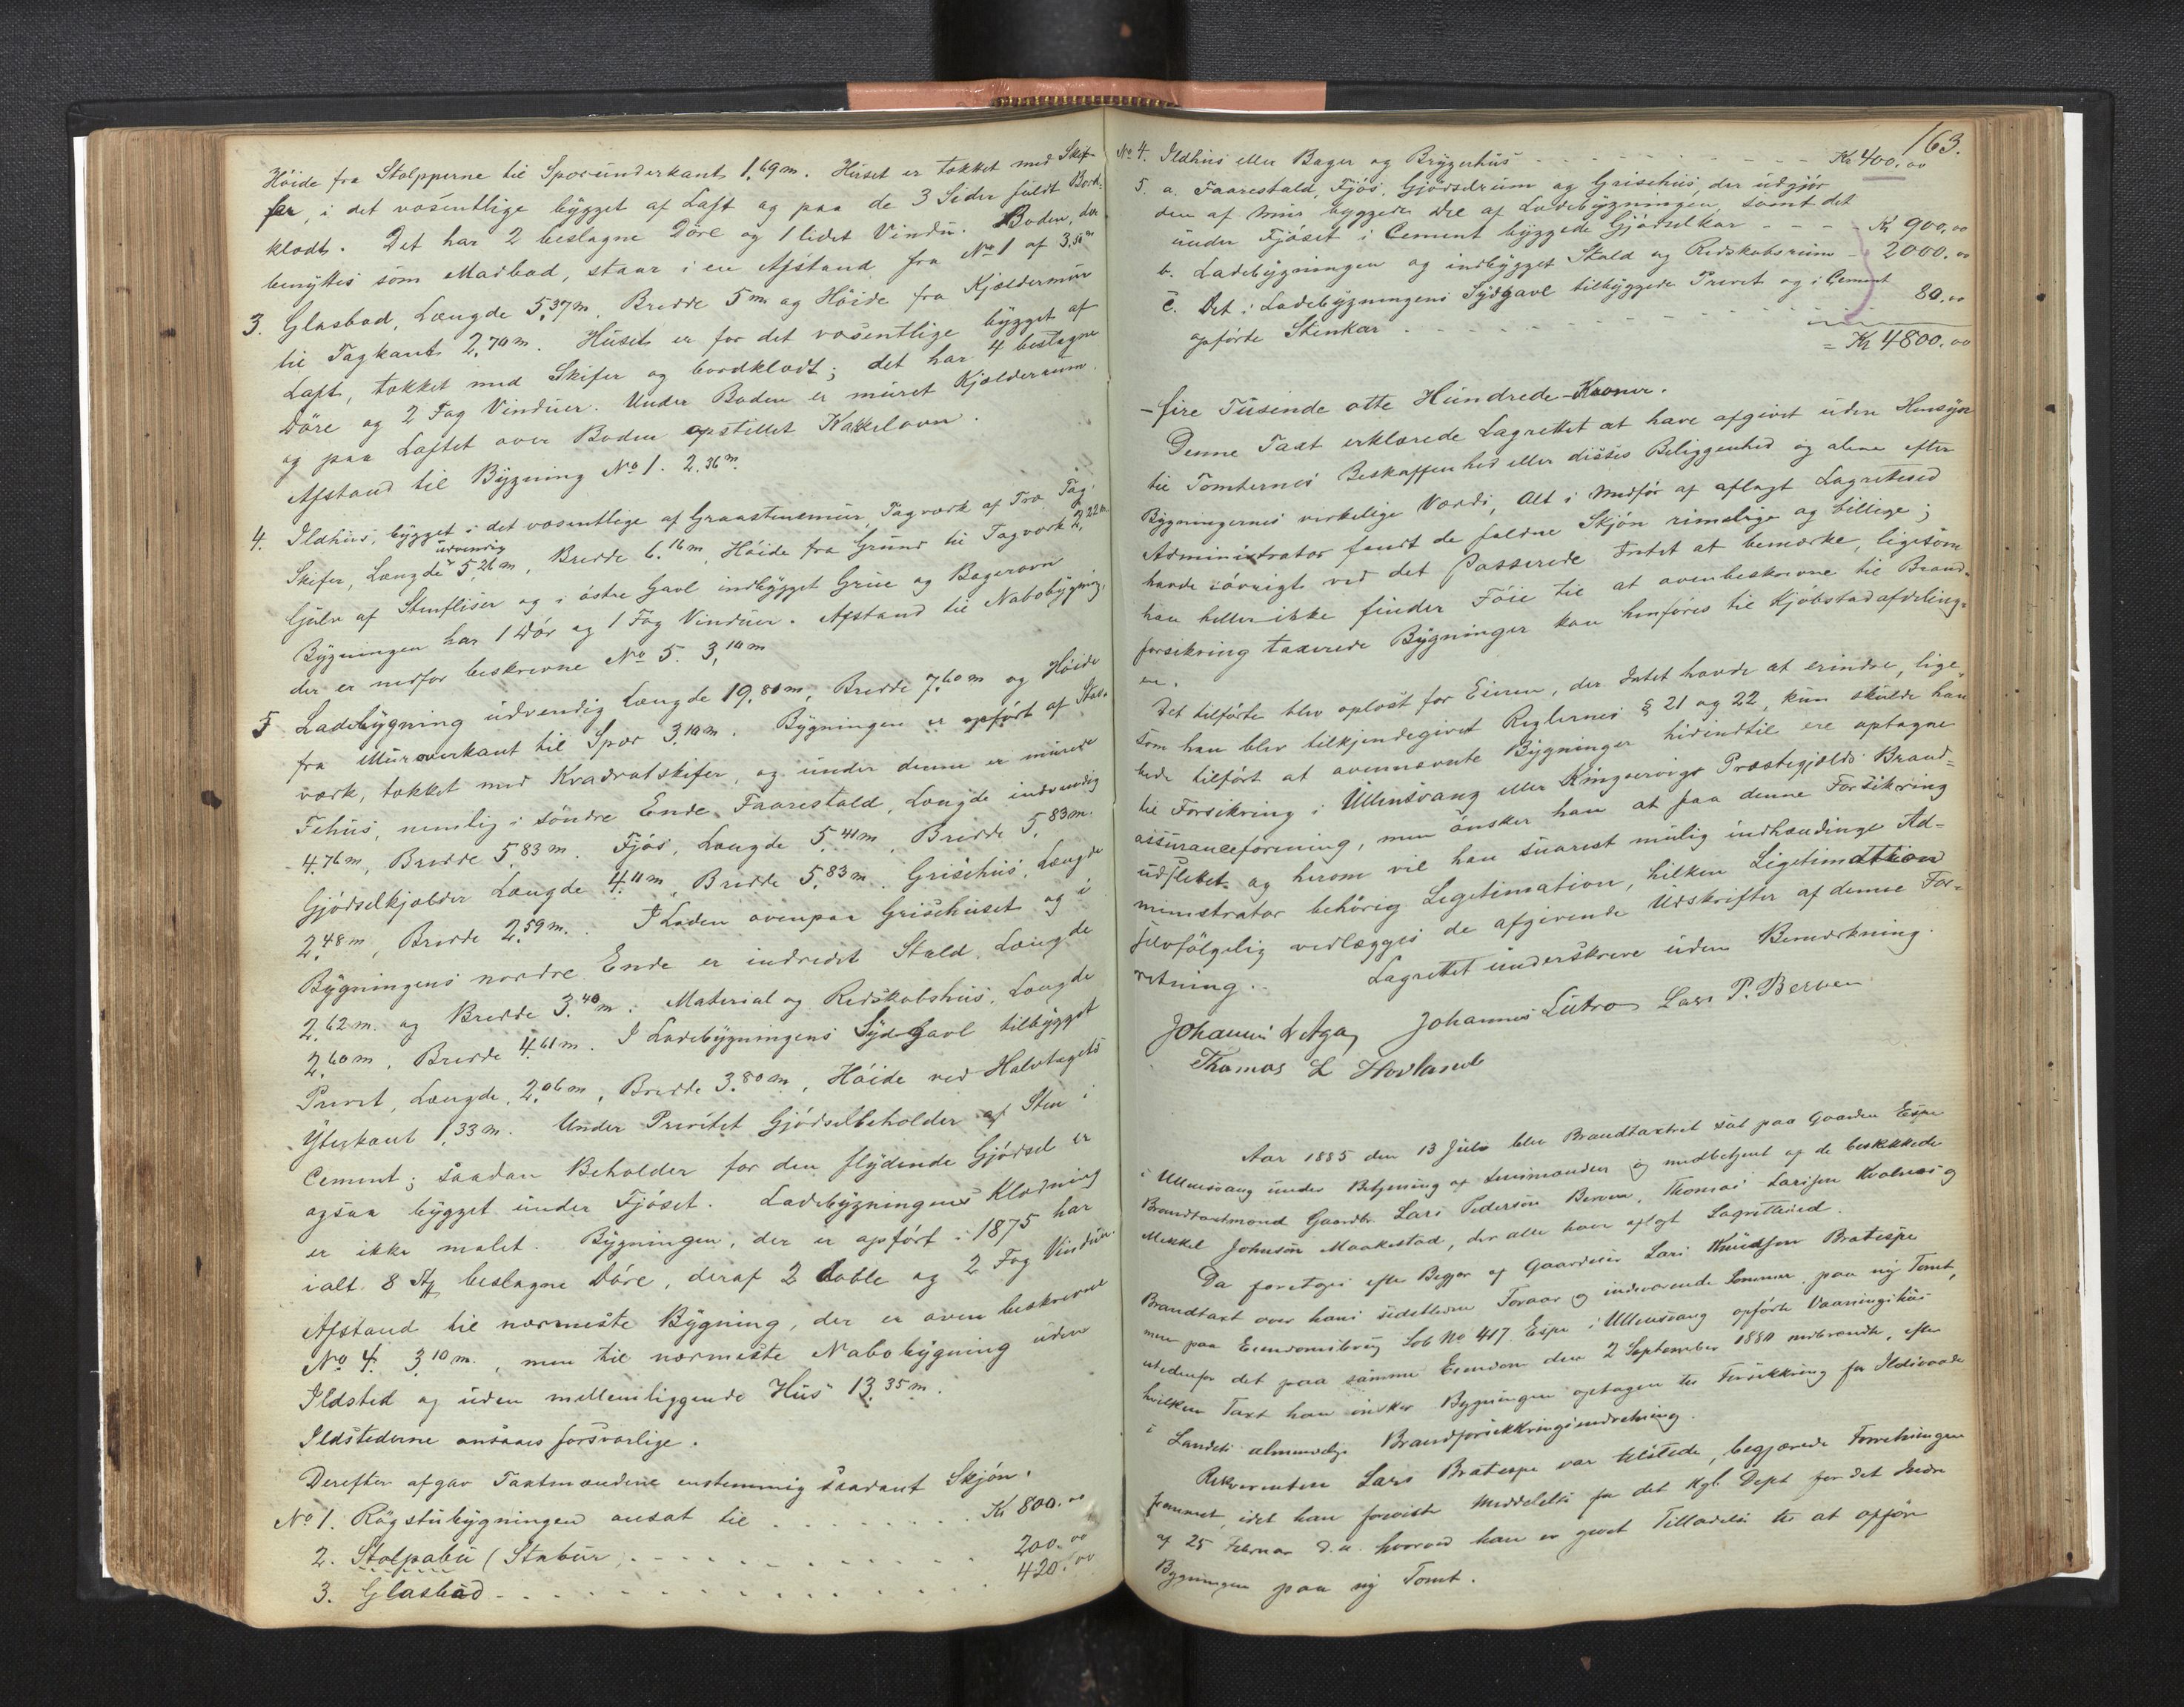 Höide fra Stolpperne til Sporunderkant 1,69 m. Huset er tækket med Skif-
fer, i det væsentlige bygget af Laft og paa de 3 Sider fuldt Bord-
klædt. Det har 2 beslagne Döre og 1 lidet Vindu. Boden, der
benyttes som Madbod, staar i en Afstand fra No 1 af 3,50 m
3. Glasbod, Længde 5,37 m, Bredde 5 m og Höide fra Kjældermur
til Tagkant 2,70 m. Huset er for det væsentlige bygget af
Laft, tækket med Skifer og bordklædt; det har 4 beslagne
Döre og 2 Fag Vinduer. Under Boden er muret Kjælderrum
og paa Laftet over Boden opstillet Kakkelovn.
Afstand til Bygning No 1. 2,36 m.
4. Ildhus, bygget i det væsentlige af Graastensmur, Tagværk af Træ. Tag:
Skifer, Længde udvendig 5,26 m, Bredde 6,16 m, Höide fra Grund til Tagværk 2,22 m.
Gulv af Stenfliser og i östre Gavl indbygget Grue og Bagerovn
Bygningen har 1 Dör og 1 Fag Vinduer. Afstand til Nabobygning,
der er nedfor beskrevne No 5. 3,10 m
5 Ladebygning udvendig Længde 19,80 m, Bredde 7,60 m og Höide
fra Muroverkant til Spær 3,10 m. Bygningen er opfört af Stav-
værk, tækket med Kvadratskifer, og under denne er murede
Fehus, nemlig i söndre Ende Faarestald, Længde indvendig
4,76 m, Bredde 5,83 m. Fjös, Længde 5,41 m, Bredde 5,83 m.
Gjödselkjælder Længde 4,11 m, Bredde 5,83 m. Grisehus, Længde
2,48 m, Bredde 2,59 m. I Laden ovenpaa Grisehuset og i
Bygningens nordre Ende er indredet Stald, Længde
2,62 m. og Bredde 3,40 m. Material og Redskabshus, Længde
2,60 m, Bredde 4,61 m. I Ladebygningens Syd Gavl tilbygget
Privet, Længde, 2,06 m, Bredde 3,80 m, Höide ved Halvtagets
Yterkant 1,33 m. Under Privetet Gjödselbeholder af Sten i
Cement; saadan Beholder for den flydende Gjödsel er
ogsaa bygget under Fjöset. Ladebygningens Klædning
er ikke malet. Bygningen, der er opfört i 1875 har
ialt 8 St beslagne Döre, deraf 2 doble og 2 Fag Vinduer.
Afstand til nærmeste Bygning, der er oven beskrevne
No 4. 3,10 m., men til nærmeste Nabobygning uden
Ildsted og uden mellemliggende Hus 13,35 m.
Ildstederne ansaaes forsvarlige.
Derefter afgav Taxtmændene enstemmig saadant Skjön.
No 1. Rögstubygningen ansat til Kr 800.00
2. Stolpabu (Stabur) 200.00
3. Glasbod 420.00
163.
No 4. Ildhus eller Bager og Bryggerhus Kr 400.00
5. a. Faarestald, Fjös, Gjödselrum og Grisehus, der udgjör
den af Mur byggede Del af Ladebygningen, samt det
under Fjöset i Cement byggede Gjödselkar Kr 900,00
b. Ladebygningen og indbygget Stald og Redskabsrum 2000.00
c. Det i Ladebygningens Sydgavl tilbyggede Privet og i Cement
opförte Stenkar 80.00
= Kr 4800.00
- fire Tusende otte Hundrede Kroner.
Denne Taxt erklærede Lagrettet at have afgivet uden Hensyn
til Tomternes Beskaffenhed eller disses Beliggenhed og alene efter
Bygningernes virkelige Værdi, Alt i Medför af aflagt Lagretteed
Administrator fandt de faldne Skjön rimelige og billige;
havde iövrigt ved det Passerede Intet at bemærke, ligesom
han heller ikke finder Föie til at ovenbeskrevne til Brand-
forsikring taxerede Bygninger kan henföres til Kjöbstadafdeling-
en.
Det tilförte blev oplæst for Eieren, der Intet havde at erindre, lige-
som han blev tilkjendegivet Reglernes § 21 og 22, kun skulde han
bede tilfört at ovennævnte Bygninger hidindtil ere optagne
til Forsikring i Ullensvang eller Kingservigs Præstegjælds Brand=
assuranceforening, men önsker han at faa denne Forsikring
udslettet og herom vil han snarest mulig indhændige Ad=
ministrator behörig Legitimation, hilken Legitimation
selvfölgelig vedlægges de afgivende Udskrifter af denne For-
retning.
Lagrettet underskrev uden Bemærkning.
Johannes L Aga Johannes Lutro Lars P. Berven
Thomas L Hovland
Aar 1885 den 13 Juli blev Brandtaxtret sat paa Gaarden Espe
i Ullensvang under Betjening af Lensmanden og medbetjent af de beskikkede
Brandtaxtmænd Gaardbr. Lars Pedersen Berven, Thomas Larssen Kvalnæs og
Mikkel Johnson Maakestad, der alle have aflagt Lagretteed.
Da foretoges efter Begjær af Gaardeier Lars Knudsen Bratespe
Brandtaxt over hans sidstleden Foraar og indeværende Sommer paa ny Tomt,
men paa Eiendomsbrug Löb No 417 Espe i Ullensvang opförte Vaaningshus
istedenfor det paa samme Eiendom den 2 September 1884 nedbrændte, efter
hvilken Taxt han önsker Bygningen optagen til Forsikkring for Ildsvaade
i Landets almindelige Brandforsikkringsindretning.
Rekvirenten Lars Bratespe var tilstede, begjærede Forretningen
fremmet, idet han foreviste Meddelelse fra det Kgl. Dept for det Indre
af 25 Februar d. a. hvorved han er givet Tilladelse til at opföre
Bygningen paa ny Tomt.